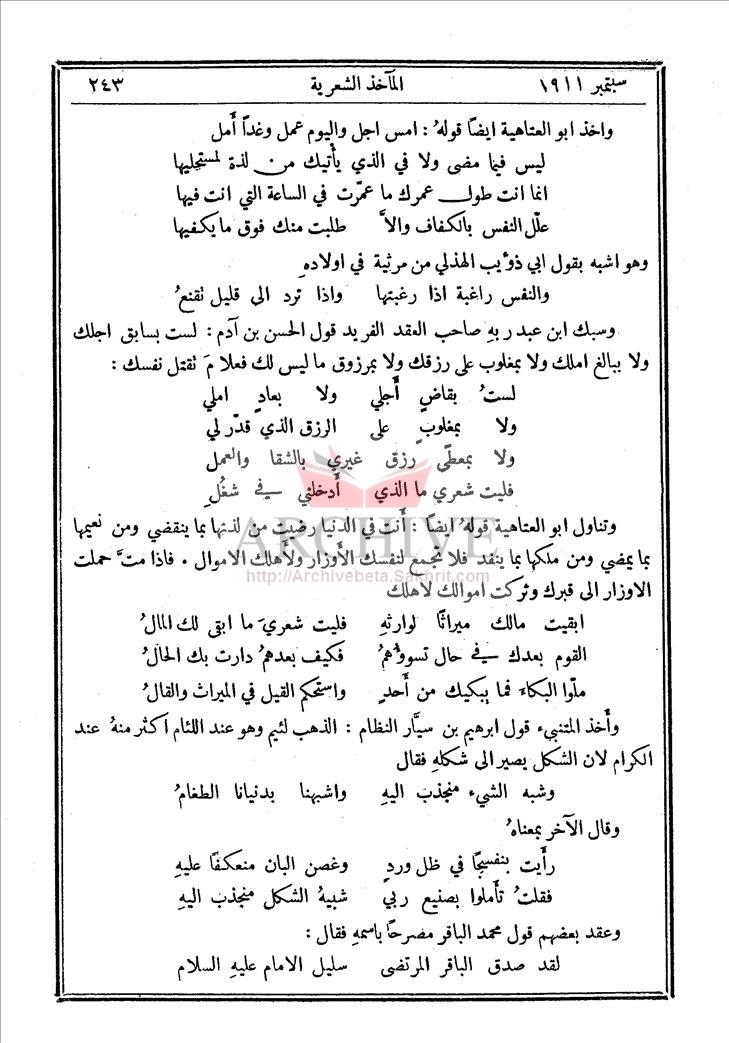 سبتمبر ١٩١١ المآخذ الشعرية ٢٤٣
واخذ ابو العتاهية ايضًا قولهُ : امس اجل واليوم عمل وغدًا أَمل
ليس فيما مضى ولا في الذي يأتيك من لذة لمستحليها
انما انت طول عمرك ما عمّرت في الساعة التي انت فيها
علّل النفس بالكفاف والاَّ طلبت منك فوق ما يكفيها
وهو اشبه بقول ابي ذوٴيب الهذلي من مرثية في اولادهِ
والنفس راغبة اذا رغبتها واذا ترد الى قليل تقنعُ
وسبك ابن عبد ربهِ صاحب العقد الفريد قول الحسن بن آدم : لست بسابق اجلك
ولا ببالغ املك ولا بمغلوب على رزقك ولا بمرزوق ما ليس لك فعلا مَ تقتل نفسك :
لستُ بقاضٍ أَجلي ولا بعادٍ املي
ولا بمغلوبٍ على الرزق الذي قدّر لي
ولا بمعطًى رزق غيري بالشقا والعمل
فليت شعري ما الذي أَدخلني في شغُلِ
وتناول ابو العتاهية قولهُ ايضًا : أَنت في الدنيا رضيت من لذتها بما ينقضي ومن نعيمها
بما يمضي ومن ملكها بما ينفد فلا تجمع لنفسك الأَوزار ولأَهلك الاموال . فاذا متَّ حملت
الاوزار الى قبرك وتركت اموالك لاهلك
ابقيت مالك ميراثًا لوارثهِ فليت شعريَ ما ابقى لك المالُ
القوم بعدك في حال تسوؤهمُ فكيف بعدهمُ دارت بك الحالُ
ملّوا البكاءَ فما يبكيك من أَحدٍ واستحكم القيل في الميراث والقالُ
وأَخذ المتنبيء قول ابرهيم بن سيَّار النظام : الذهب لئيم وهو عند اللئام اكثر منهُ عند
الكرام لان الشكل يصير الى شكلهِ فقال
وشبه الشيء منجذب اليهِ واشبهنا بدنيانا الطغامُ
وقال الآخر بمعناهُ
رأَيت بنفسجًا في ظل وردٍ وغصن البان منعكفًا عليهِ
فقلتُ تأَملوا بصنيع ربي شبيهُ الشكل منجذب اليهِ
وعقد بعضهم قول محمد الباقر مصرحًا باسمهِ فقال :
لقد صدق الباقر المرتضى سليل الامام عليهِ السلام
ARCHIVE
http://Archivebeta.Sakhrit.com